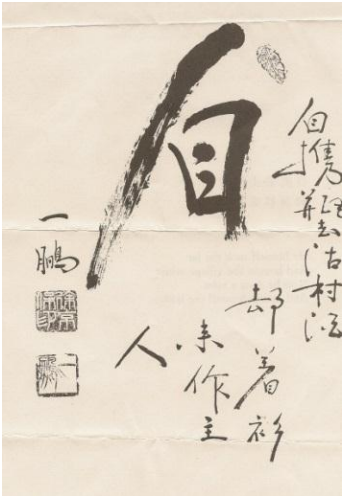 自
自携瓶去沽村酒
却着衫
来作主
人
一鵬